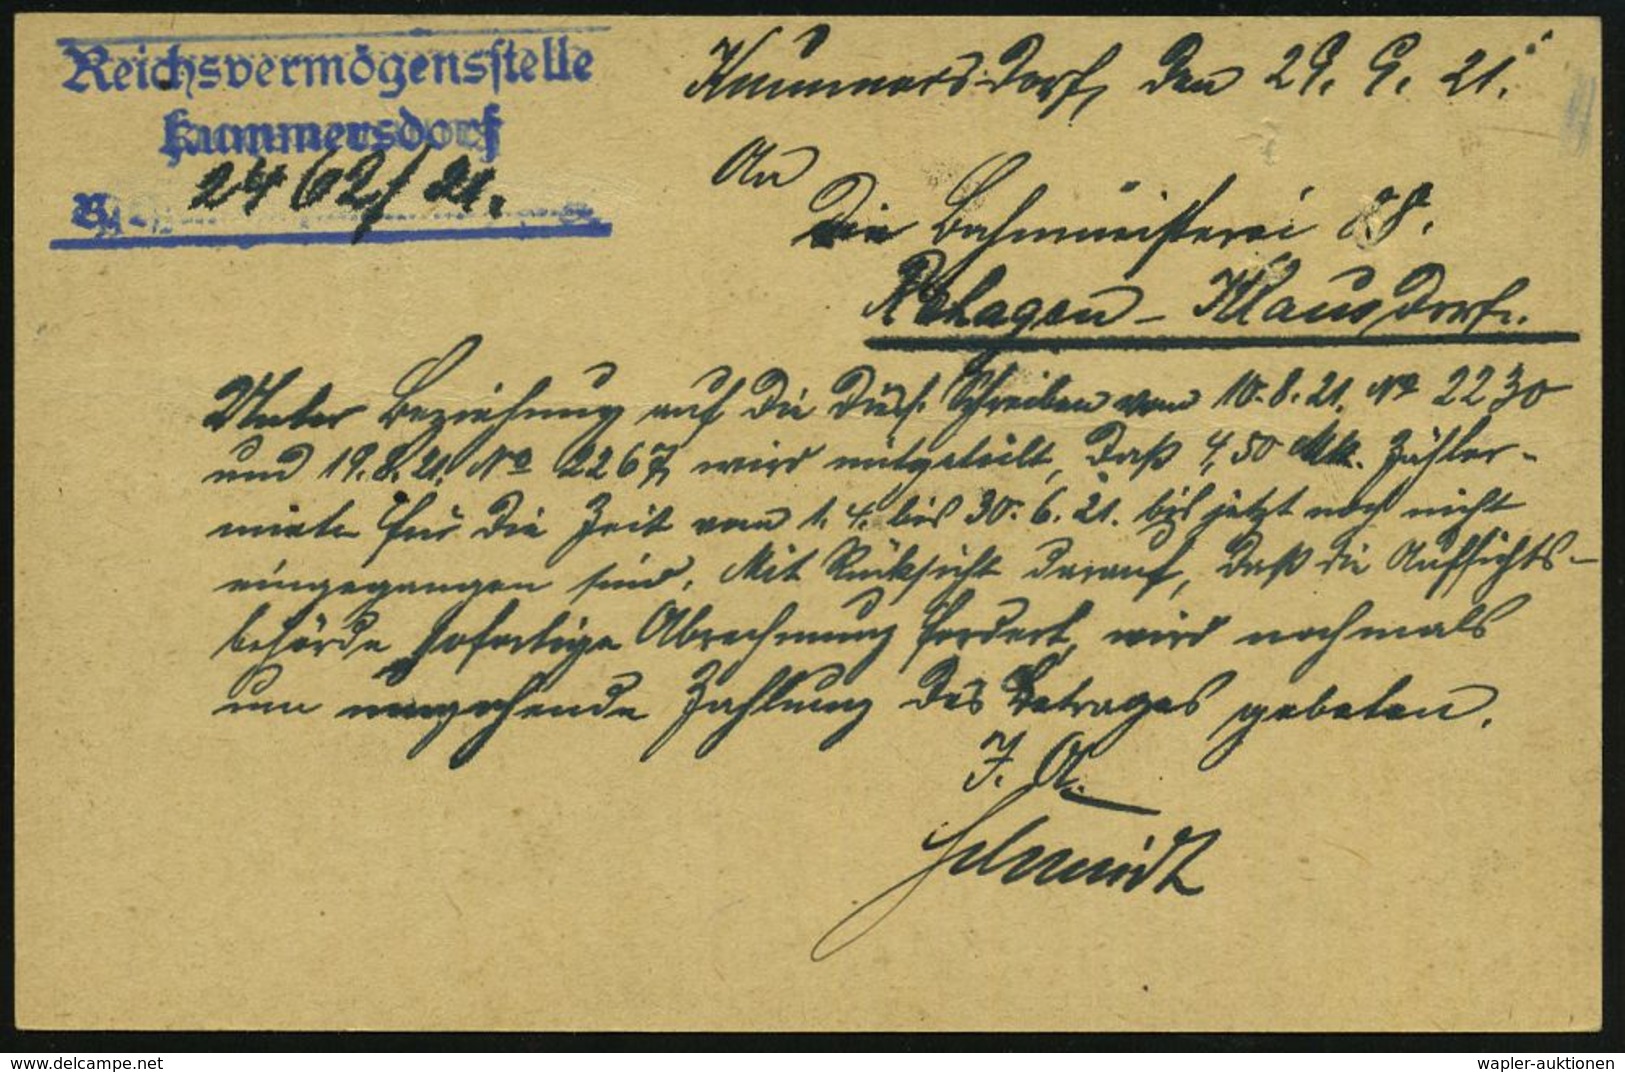 Reichsvermögensstelle
Kummersdorf
2462/21.
Kummersdorf, den 29. 9. 21.
An
die Bahnmeisterei 88.
Rehagen-Klausdorf.
Unter Beziehung auf die dies. Schreiben vom 10.8.21. No 2230
und 19.8.21. No 2267, wird mitgeteilt, daß 4,50 Mk. Zähler-
miete für die Zeit vom 1. 4. bis 30. 6. 21. bis jetzt noch nicht
eingegangen sind. Mit Rücksicht darauf, daß die Aufsichts-
behörde sofortige Abrechnung fordert, wird nochmals
um umgehende Zahlung des Betrages gebeten.
I. A.
Schmidt
delcampe.net
wapler-auktionen